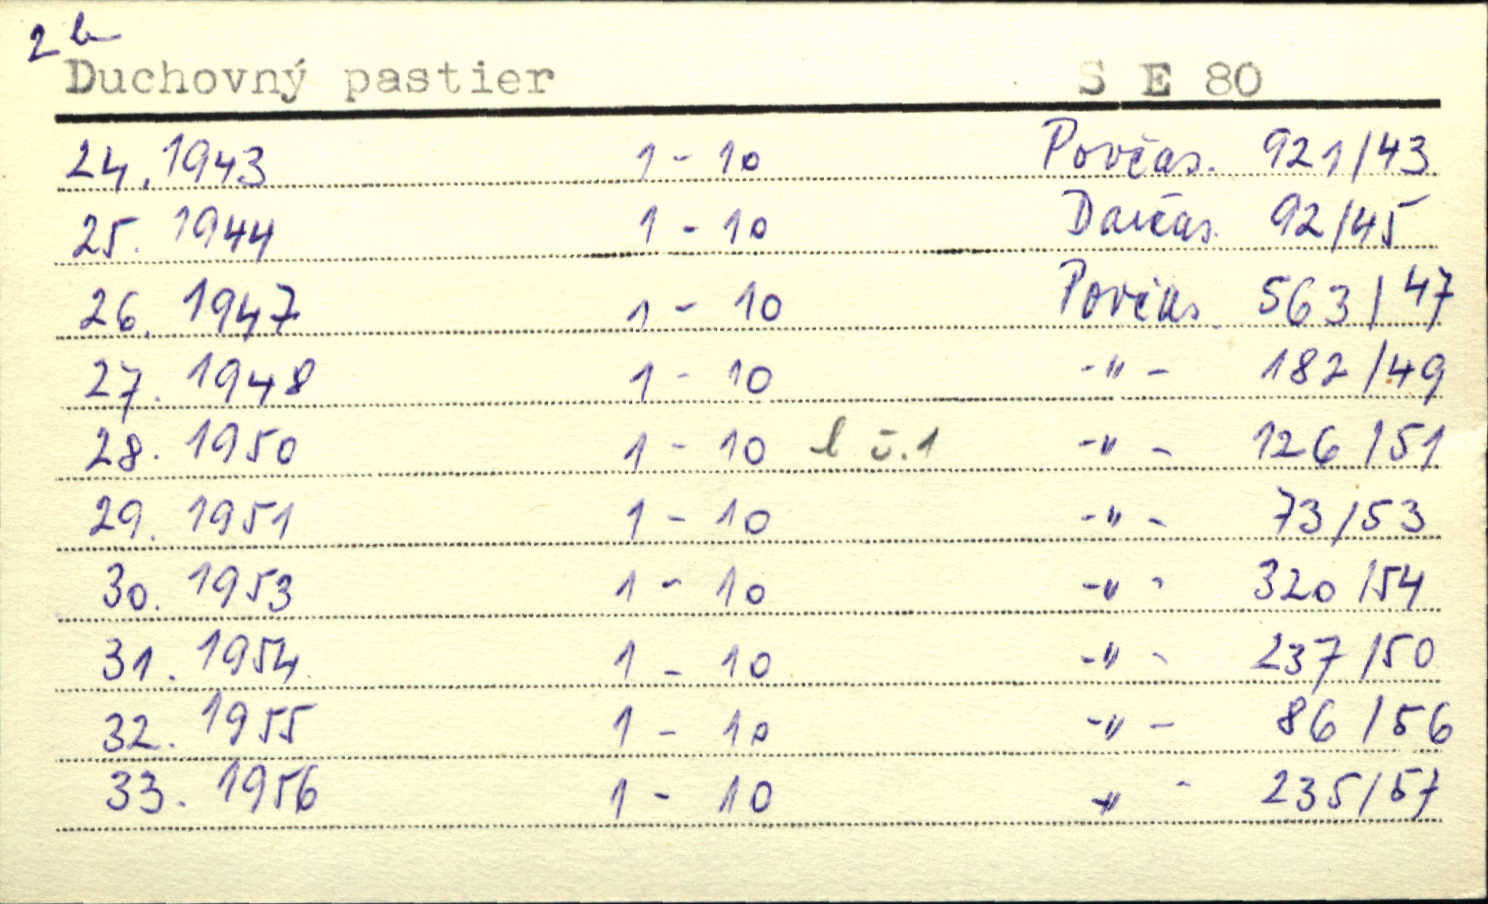 2b
Duchovný pastier S E 80
24. 1943 1 - 10 Povčas. 921/43
25. 1944 1 - 10 Darčas. 92/45
26. 1947 1 - 10 Povčas. 563/47
27. 1948 1 - 10 -"- 182/49
28. 1950 1 - 10 č.1 -"- 126/51
29. 1951 1 - 10 -"- 73/53
30. 1953 1 - 10 -"- 320/54
31. 1954 1 - 10 -"- 237/50
32. 1955 1 - 10 -"- 86/56
33. 1956 1 - 10 -"- 235/57